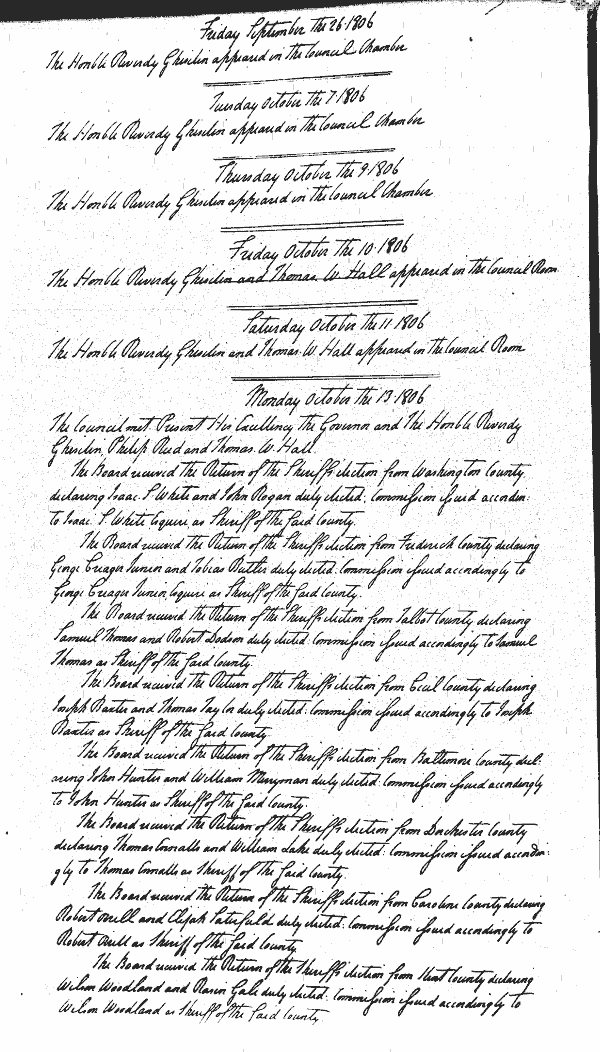 Friday September the 26 1806
The Honble Reverdy Ghiselin appeared in the Council Chamber
Tuesday October the 7 1806
The Honble Reverdy Ghiselin appeared in the Council Chamber
Thursday October the 9 1806
The Honble Reverdy Ghiselin appeared in the Council Chamber
Friday October the 10 1806
The Honble Reverdy Ghiselin and Thomas. W. Hall appeared in the Council Room
Saturday October the 11 1806
The Honble Reverdy Ghiselin and Thomas. W Hall appeared in the Council Room
Monday October the 13 1806
The Council met. Present His Excellency The Governor and The Honble Reverdy
Ghiselin, Philip Reed and Thomas. W. Hall.
The Board received the Return of the Sheriffs election from Washington County
declaring Isaac. S White and John Ragan duly elected: Commission issued accordin:
to Isaac. S. White Esquire, as Sheriff of the said County.
The Board received the Return of the Sheriffs election from Frederick County declaring
George Creager Junior and Tobias Butler duly elected: Commission issued accordingly to
George Creager Junior, Esquire as Sheriff of the said County.
The Board received the Return of the Sheriffs election from Talbot County declaring
Samuel Thomas and Robert Dodson duly elected: Commission issued accordingly to Samuel
Thomas as Sheriff of the said County.
The Board received the Return of the Sheriffs election from Cecil County declaring
Joseph Baxter and Thomas Taylor duly elected: Commission issued accordingly to Joseph
Baxter as Sheriff of the said County
The Board received the Return of the Sheriffs election from Baltimore County decl:
aring John Hunter and William Merryman duly elected: Commission issued accordingly
to John Hunter as Sheriff of the said County.
The Board received the Return of the Sheriffs election from Dorchester County
declaring Thomas Ennalls and William Lake duly elected: Commission issued accordin:
gly to Thomas Ennalls as Sheriff of the said County.
The Board received the Return of the Sheriffs election from Caroline County declaring
Robert Orrell and Elijah Saterfield duly elected: Commission issued accordingly to
Robert Orrell as Sheriff of the said County.
The Board received the Return of the Sheriffs election from Kent County declaring
Wilson Woodland and Rasin Gale duly elected: Commission issued accordingly to
Wilson Woodland as Sheriff of the said County